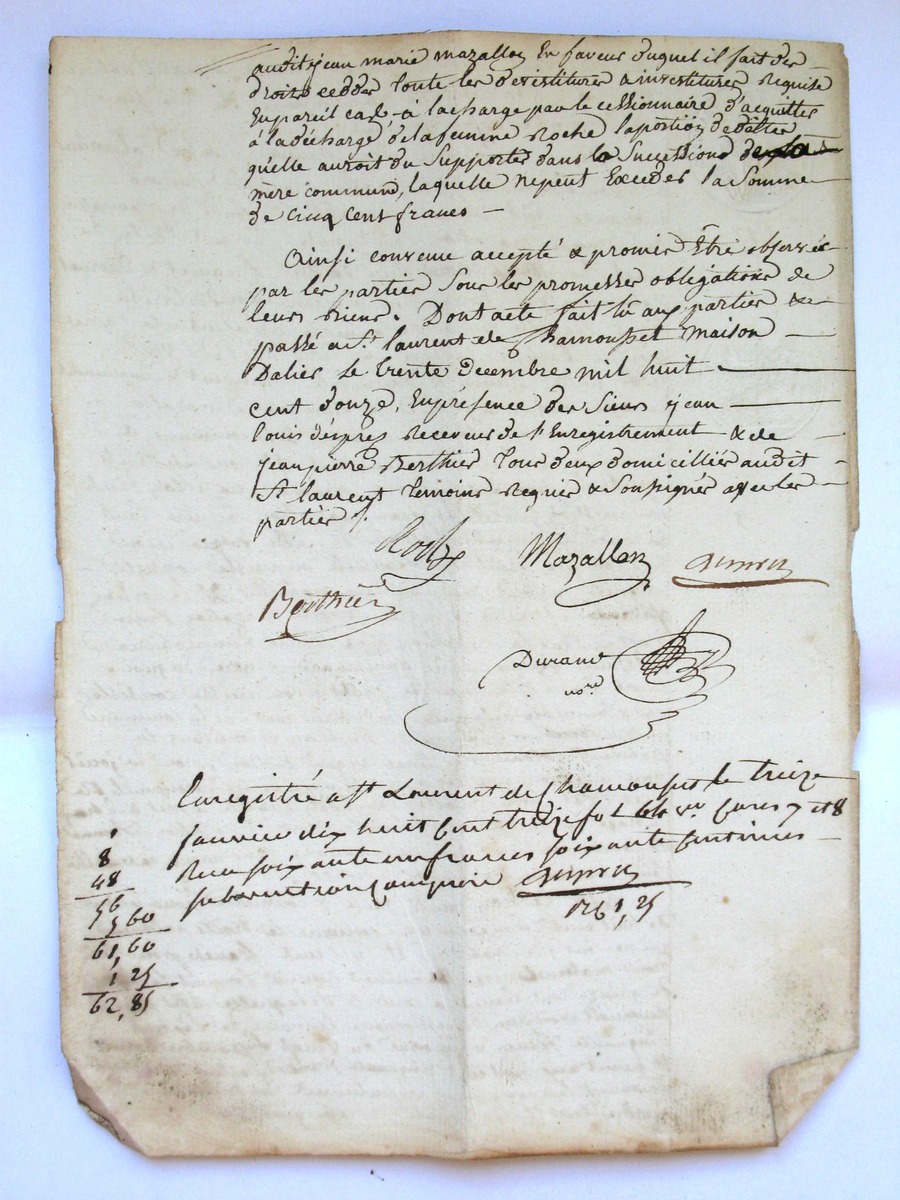 audit jean marie mazallon en faveur duquel il fait des
droits cedder toute les devestitures & investitures requise
en pareil cas à la charge par le cessionnaire d'acquitter
à la décharge de la femme Roche la portion de dettes
quelle auroit du supporter dans la succession de
mère commune, laquelle ne peut exceder la somme
de cinq cent francs —
Ainsi convenu accepté & promis être observée
par les partier sous les promesses obligations de
leurs biens. Dont acte fait lû aux partier &
passé a St. laurent de Chamousset maison
Dalier le trente decembre mil huit
cent douze, en présence des sieurs jean
louis després receveur de l'Enregistrement & de
jean pierre Berthier tous deux domicilliés audit
St. laurent temoins requis & soussignés avec les
partier ./.
Roche Mazallon
Berthier
Durand
no.re
Enregistré a St Laurent de Chamousset le treize
janvier dix huit cent treize fo 64 vo cases 7 et 8
Recu soixante un francs soixante centimes
subvention comprise
8
48
56
5,60
61,60
1 25
62,85
1,25